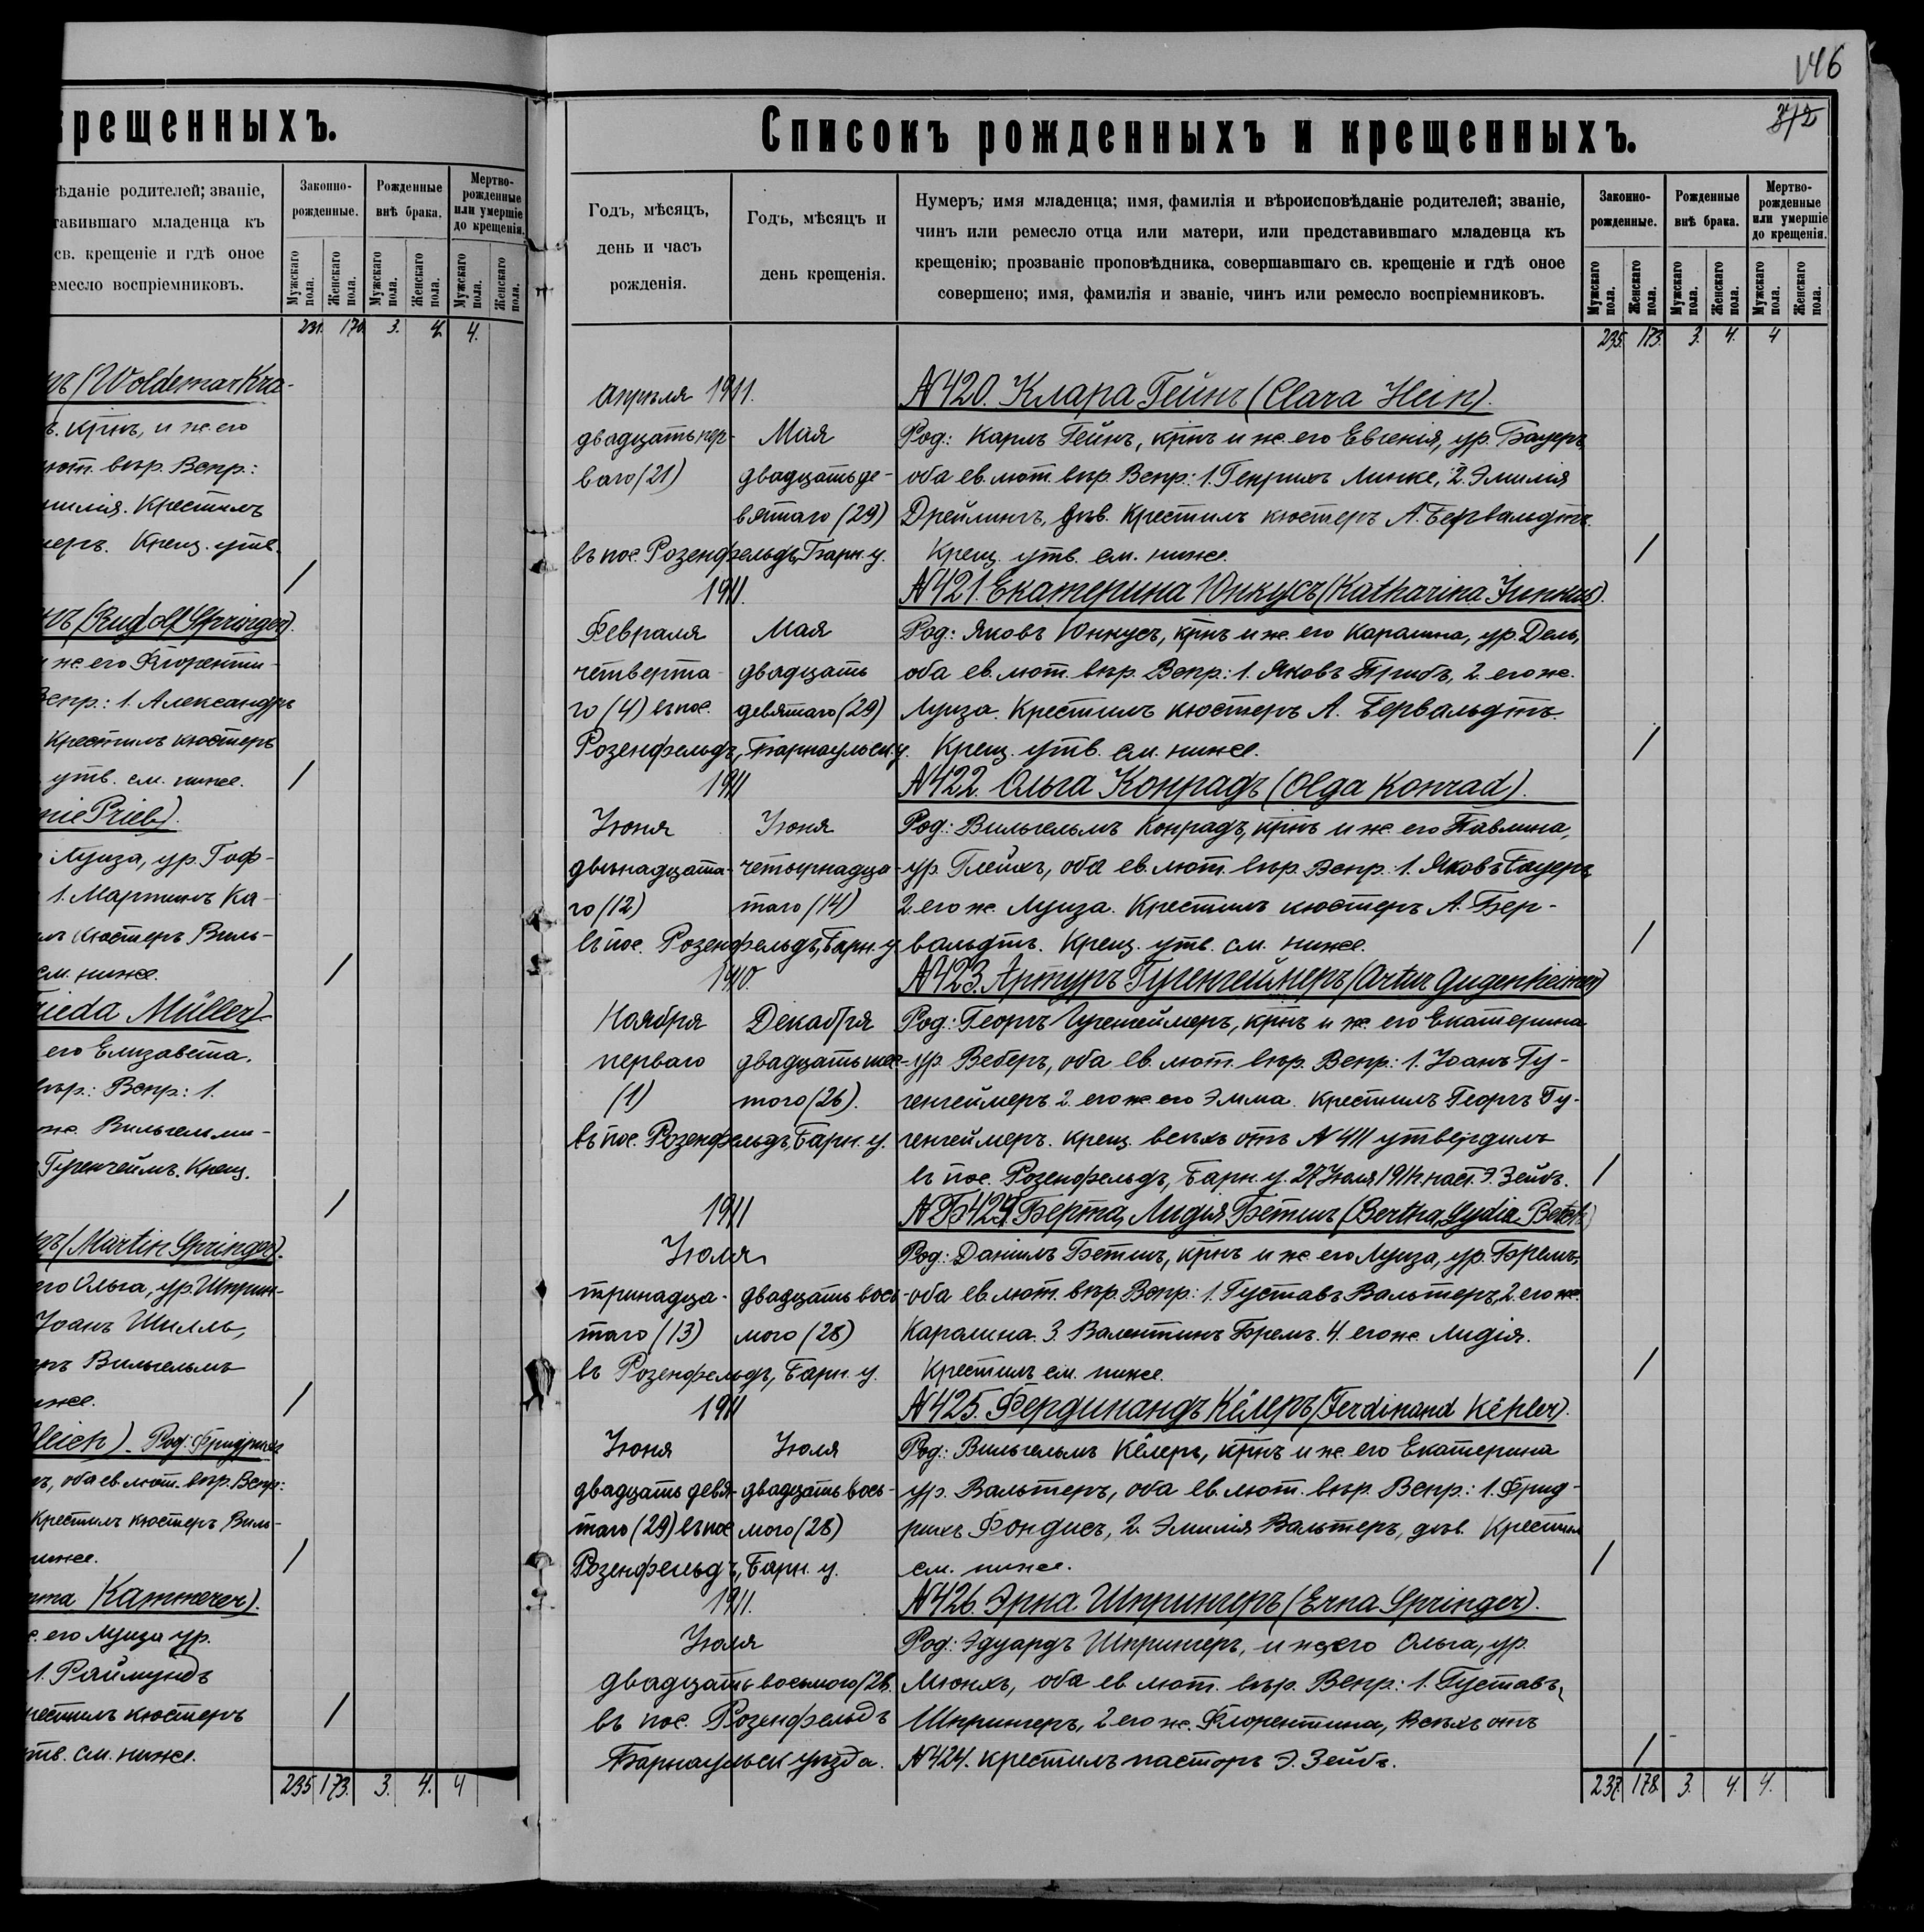 крещенныхъ.
ѣданіе родителей; званіе,
тавившаго младенца къ
св. крещеніе и гдѣ оное
емесло воспріемниковъ.
Законно-рожденные.
Рожденные внѣ брака.
Мертво-рожденные или умершіе до крещенія.
Мужскаго пола.
Женскаго пола.
Мужскаго пола.
Женскаго пола.
Мужскаго пола.
Женскаго пола.
231. 170. 3. 4. 4.
ъ (Woldemar Kra-
ъ. крнъ, и ж. его
лют. вѣр. Вспр.:
милія. Крестилъ
теръ. Крещ. утв.
(Rudolf Springer).
ж. его Флоренти-
Вспр.: 1. Александръ
Крестилъ кюстеръ
утв. см. ниже.
nie Prieb).
Луиза, ур. Гоф-
1. Мартинъ Ка-
лъ кюстеръ Виль-
см. ниже.
rieda Müller).
его Елизавета,
вѣр.: Вспр.: 1.
ж. Вильгельми-
Гугенгеймъ. Крещ.
(Martin Springer).
его Ольга, ур. Шприн-
Іоанъ Шилль,
ръ Вильгельмъ
ниже.
leich). Род: Фридрихъ
ъ, оба ев. лют. вѣр. Вспр:
Крестилъ кюстеръ Виль-
ниже.
mma Kammerer).
ж. его Луиза ур.
1. Раймундъ
рестилъ кюстеръ
утв. см. ниже.
235 173. 3. 4. 4
146
Списокъ рожденныхъ и крещенныхъ.
Годъ, мѣсяцъ,
день и часъ
рожденія.
Годъ, мѣсяцъ и
день крещенія.
Нумеръ; имя младенца; имя, фамилія и вѣроисповѣданіе родителей; званіе,
чинъ или ремесло отца или матери, или представившаго младенца къ
крещенію; прозваніе проповѣдника, совершавшаго св. крещеніе и гдѣ оное
совершено; имя, фамилія и званіе, чинъ или ремесло воспріемниковъ.
Законно-рожденные.
Рожденные внѣ брака.
Мертво-рожденные или умершіе до крещенія.
Мужскаго пола.
Женскаго пола.
Мужскаго пола.
Женскаго пола.
Мужскаго пола.
Женскаго пола.
235. 173. 3. 4. 4
Апрѣля 1911. N 420. Клара Гейнъ (Clara Hein).
двадцать пер- Мая Род: Карлъ Гейнъ, крнъ и ж. его Евгенія, ур. Бауеръ,
ваго (21) двадцать де- оба ев. лют. вѣр. Вспр: 1. Генрихъ Линке, 2. Эмилія
вятаго (29) Дрейлингъ, дѣв. Крестилъ кюстеръ А. Бервальдтъ.
въ пос. Розенфельдъ, Барн. у. Крещ. утв. см. ниже.
1911. N 421. Екатерина Юнкусъ (Katharina Junkus).
Февраля Мая Род: Яковъ Юнкусъ, крнъ и ж. его Каралина, ур. Дель,
четверта- двядцать оба ев. лют. вѣр. Вспр: 1. Яковъ Прибъ, 2. его ж.
го (4) въ пос. девятаго (29) Луиза. Крестилъ кюстеръ А. Бервальдтъ.
Розенфельдъ, Барнаульск. у. Крещ. утв. см. ниже.
1911 N 422. Ольга Конрадъ (Olga Konrad).
Іюня Іюня Род: Вильгельмъ Конрадъ, крнъ и ж. его Павлина,
двѣнадцата- четырнадца- ур. Глейхъ, оба ев. лют. вѣр. Вспр: 1. Яковъ Бауеръ,
го (12) таго (14) 2. его ж. Луиза. Крестилъ кюстеръ А. Бер-
въ пос. Розенфельдъ, Барн. у. вальдтъ. Крещ. утв. см. ниже.
1910. N 423. Артуръ Гугенгеймеръ (Artur Gugenheimer)
Ноября Декабря Род: Георгъ Гугенгеймеръ, крнъ и ж. его Екатерина
перваго двадцать шес- ур. Веберъ, оба ев. лют. вѣр. Вспр: 1. Іоанъ Гу-
(1) того (26). генгеймеръ 2. его ж. его Эмма. Крестилъ Георгъ Гу-
въ пос. Розенфельдъ, Барн. у. генгеймеръ. крещ. всѣхъ отъ N 411 утвердилъ
въ пос. Розенфельдъ, Барн. у. 27 Іюля 1911г. паст. Э. Зейбъ.
1911 N 424. Берта, Лидія Бетхъ (Bertha, Lydia
Іюля Род: Даніилъ крнъ и ж. его Луиза, ур. Бремъ,
тринадца- двадцать вось- оба ев. лют. вѣр. Вспр: 1. Густавъ Вальтеръ, 2. его ж.
таго (13) мого (28) Каралина. 3. Валентинъ Бремъ. 4. его ж. Лидія.
въ Розенфельдъ, Барн. у. Крестилъ см. ниже.
1911 N 425. Фердинандъ Кёлеръ (Ferdinand Köhler).
Іюня Іюля Род: Вильгельмъ Кёлеръ, крнъ и ж. его Екатерина
двадцать девя- двадцать вось- ур. Вальтеръ, оба ев. лют. вѣр. Вспр: 1. Фрид-
таго (29) въ пос. мого (28) рихъ Фондисъ, 2. Эмилія Вальтеръ, дѣв. Крестилъ
Розенфельдъ, Барн. у. см. ниже.
1911. N 426. Эрна Шпрингеръ (Erna Springer).
Іюля Род: Эдуардъ Шпрингеръ, и ж. его Ольга, ур.
двадцать восьмого (28. Мюнхъ, оба ев. лют. вѣр. Вспр: 1. Густавъ
въ пос. Розенфельдъ Шпрингеръ, 2 его ж. Флорентина, Всѣхъ отъ
Барнаульск уѣзда. N 424. крестилъ пасторъ Э. Зейбъ.
237. 178. 3. 4. 4.